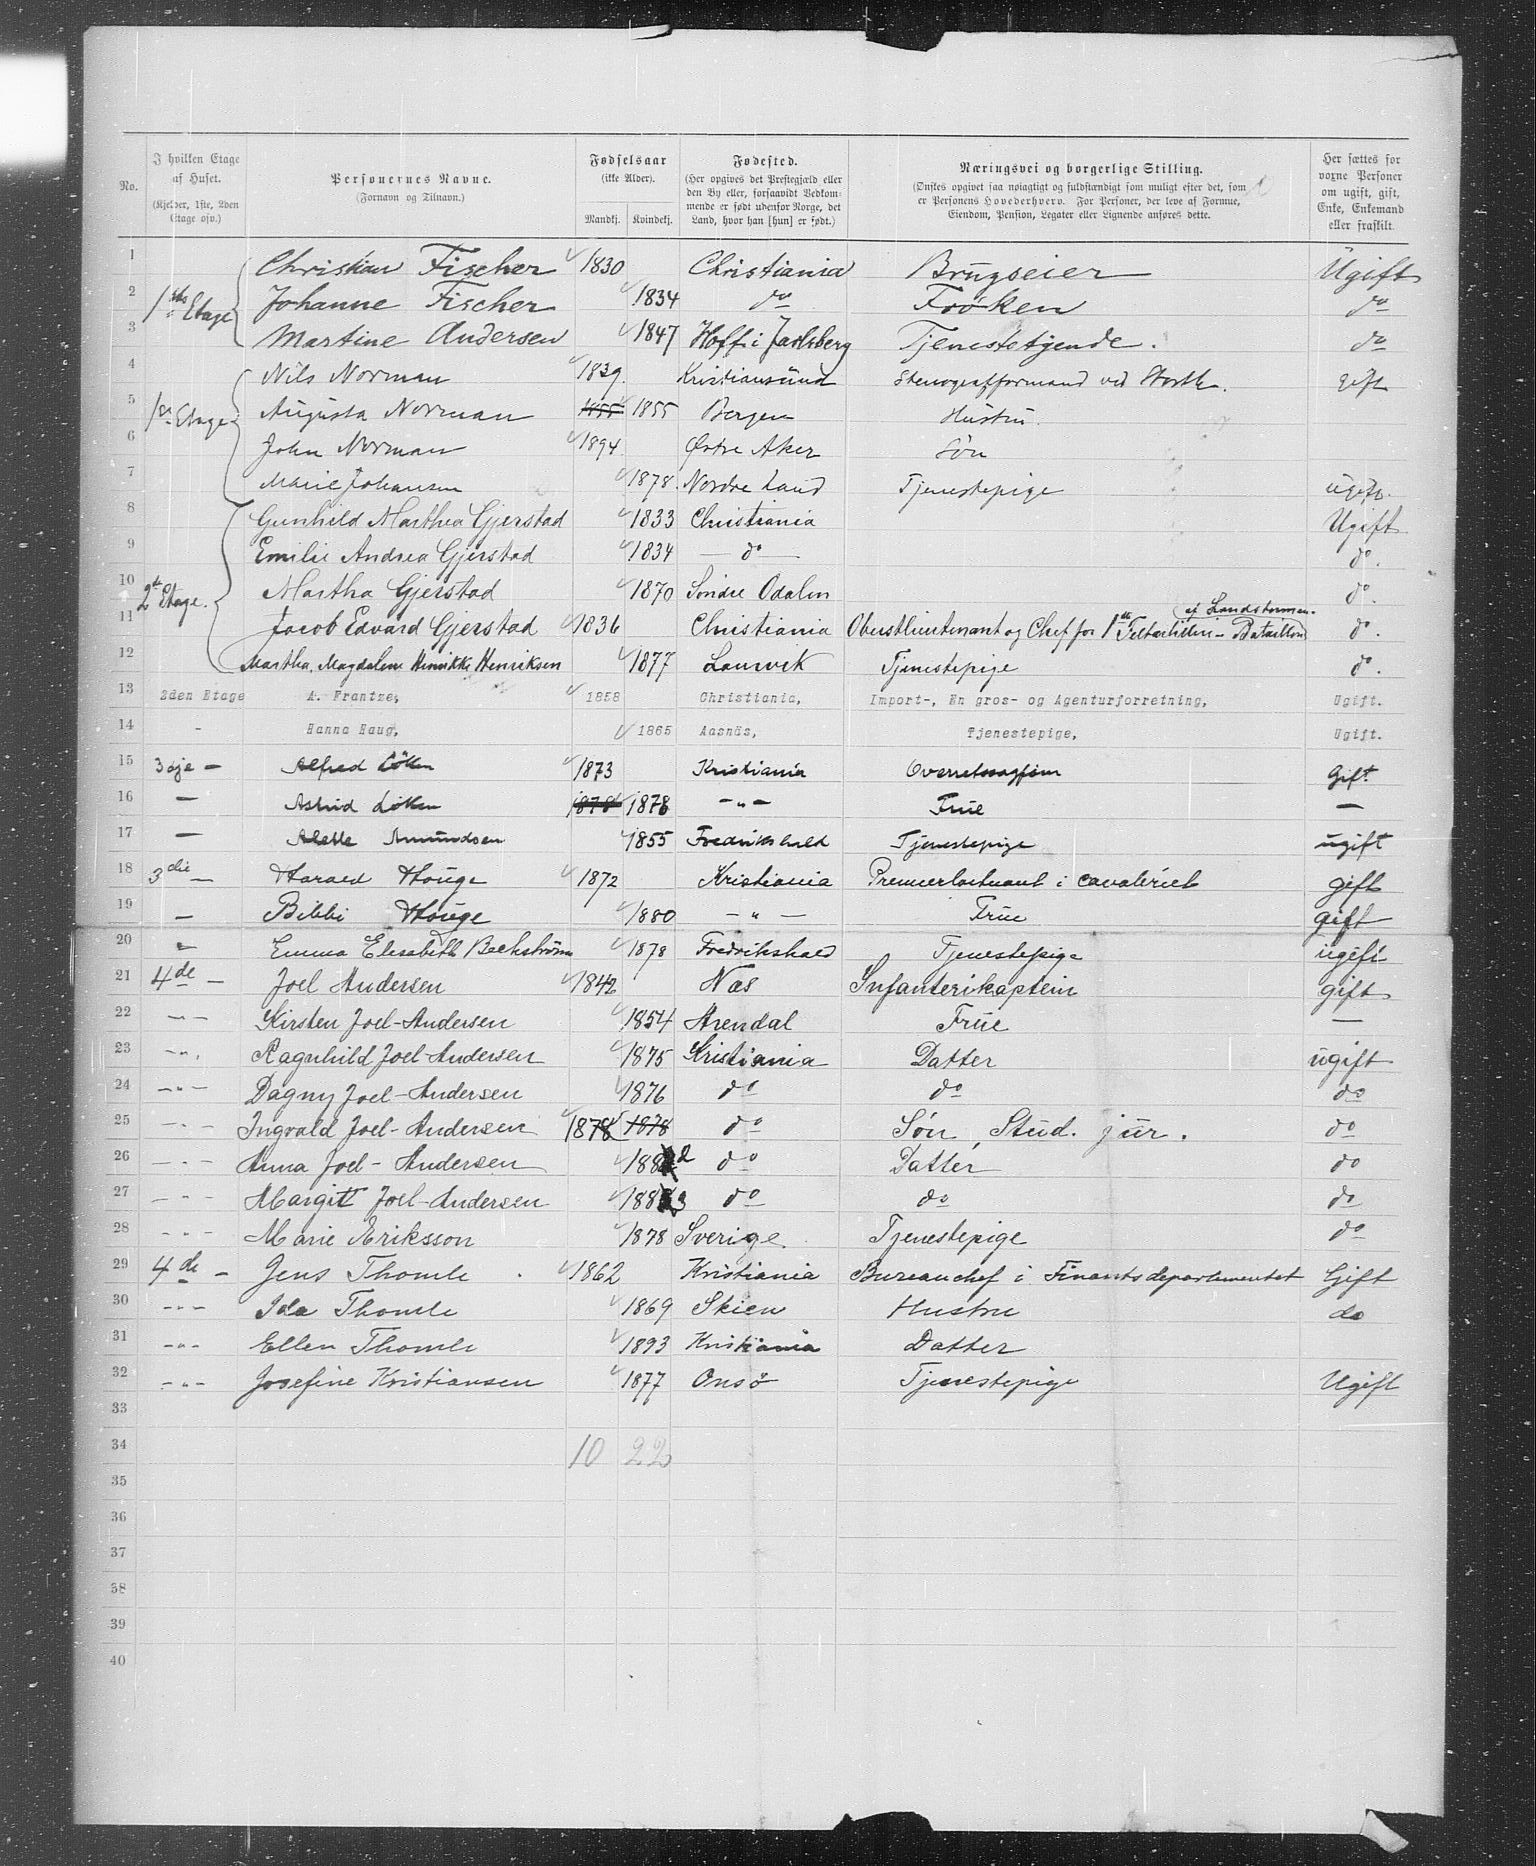 No.
I hvilken Etage af Huset.
(Kjelder, 1ste, 2den Etage osv.)
Personernes Navne.
(Fornavn og Tilnavn.)
Fødselsaar
(ikke Alder).
Mandkj. Kvindekj.
Fødested.
(Her opgives det Prestegjæld eller den By eller, forsaavidt Vedkommende er født udenfor Norge, det Land, hvor han [hun] er født.)
Næringsvei og borgerlige Stilling.
(Ønskes opgivet saa nøiagtigt og fuldstændigt som muligt efter det, som er Personens Hovederhverv. For Personer, der leve af Formue, Eiendom, Pension, Legater eller Lignende anføres dette.
Her sættes for voxne Personer om ugift, gift, Enke, Enkemand eller fraskilt.
1 Christian Fischer 1830 Christiania Brugseier Ugift
2 1ste Etage Johanne Fischer 1834 do Frøken do
3 Martine Andersen 1847 Hoff i Jarlsberg Tjenestetyende. do
4 Nils Norman 1839. Kristiansund Stenografformand ved Storth. gift
5 1ste Etage Augusta Norman 1855 1855 Bergen Hustru.
6 John Norman 1894 Østre Aker Søn
7 Marie Johansen 1878. Nordre Land Tjenestepige ugift.
8 Gunhild Marthea Gjerstad 1833 Christiania Ugift
9 Emilie Andrea Gjerstad 1834 — do — do.
10 2den Etage. Martha Gjerstad 1870 Søndre Odalen do.
11 Jacob Edvard Gjerstad 1836 Christiania Oberstlieutenant og Chef for 1ste Feltartilleri-Bataillon af Landstormen. do.
12 Martha Magdalene Henrikke Henriksen 1877 Laurvik Tjenestepige do.
13 2den Etage A. Frantze, 1858 Christiania, Import-, En gros- og Agenturforretning, Ugift.
14 - Hanna Haug, 1865 Aasnäs, Tjenestepige, Ugift.
15 3dje — Alfred Löken 1873 Kristiania Overretssagfører Gift
16 — Astrid Löken 1878 1878 — " — Frue —
17 — Alette Amundsen 1855 Fredrikshald Tjenestepige ugift
18 3die — Harald Houge 1872 Kristiania Premierløitnant i cavaleriet gift
19 — Bibbi Houge 1880 — " — Frue gift
20 — Emma Elisabeth Beckström 1878 Fredrikshald Tjenestepige ugift
21 4de — Joel Andersen 1842 Nes Infanterikaptein gift
22 — " — Kirsten Joel-Andersen 1854 Arendal Frue —
23 — " . Ragnhild Joel-Andersen 1875 Kristiania Datter ugift
24 — " — Dagny Joel-Andersen 1876 do do do
25 — " — Ingvald Joel-Andersen 1878 1878 do Søn, Stud. jur. do
26 — " — Anna Joel-Andersen 1882 do Datter do
27 — " — Margit Joel-Andersen 1883 do do do
28 — " — Marie Eriksson 1878 Sverige. Tjenestepige do
29 4de — Jens Thomle 1862 Kristiania Bureauchef i Finantsdepartementet Gift
30 — " — Ida Thomle 1869 Skien Hustru do
31 — " — Ellen Thomle 1893 Kristiania Datter
32 — " — Josefine Kristiansen 1877 Onsö Tjenestepige Ugift
33
34 10 22
35
36
37
38
39
40